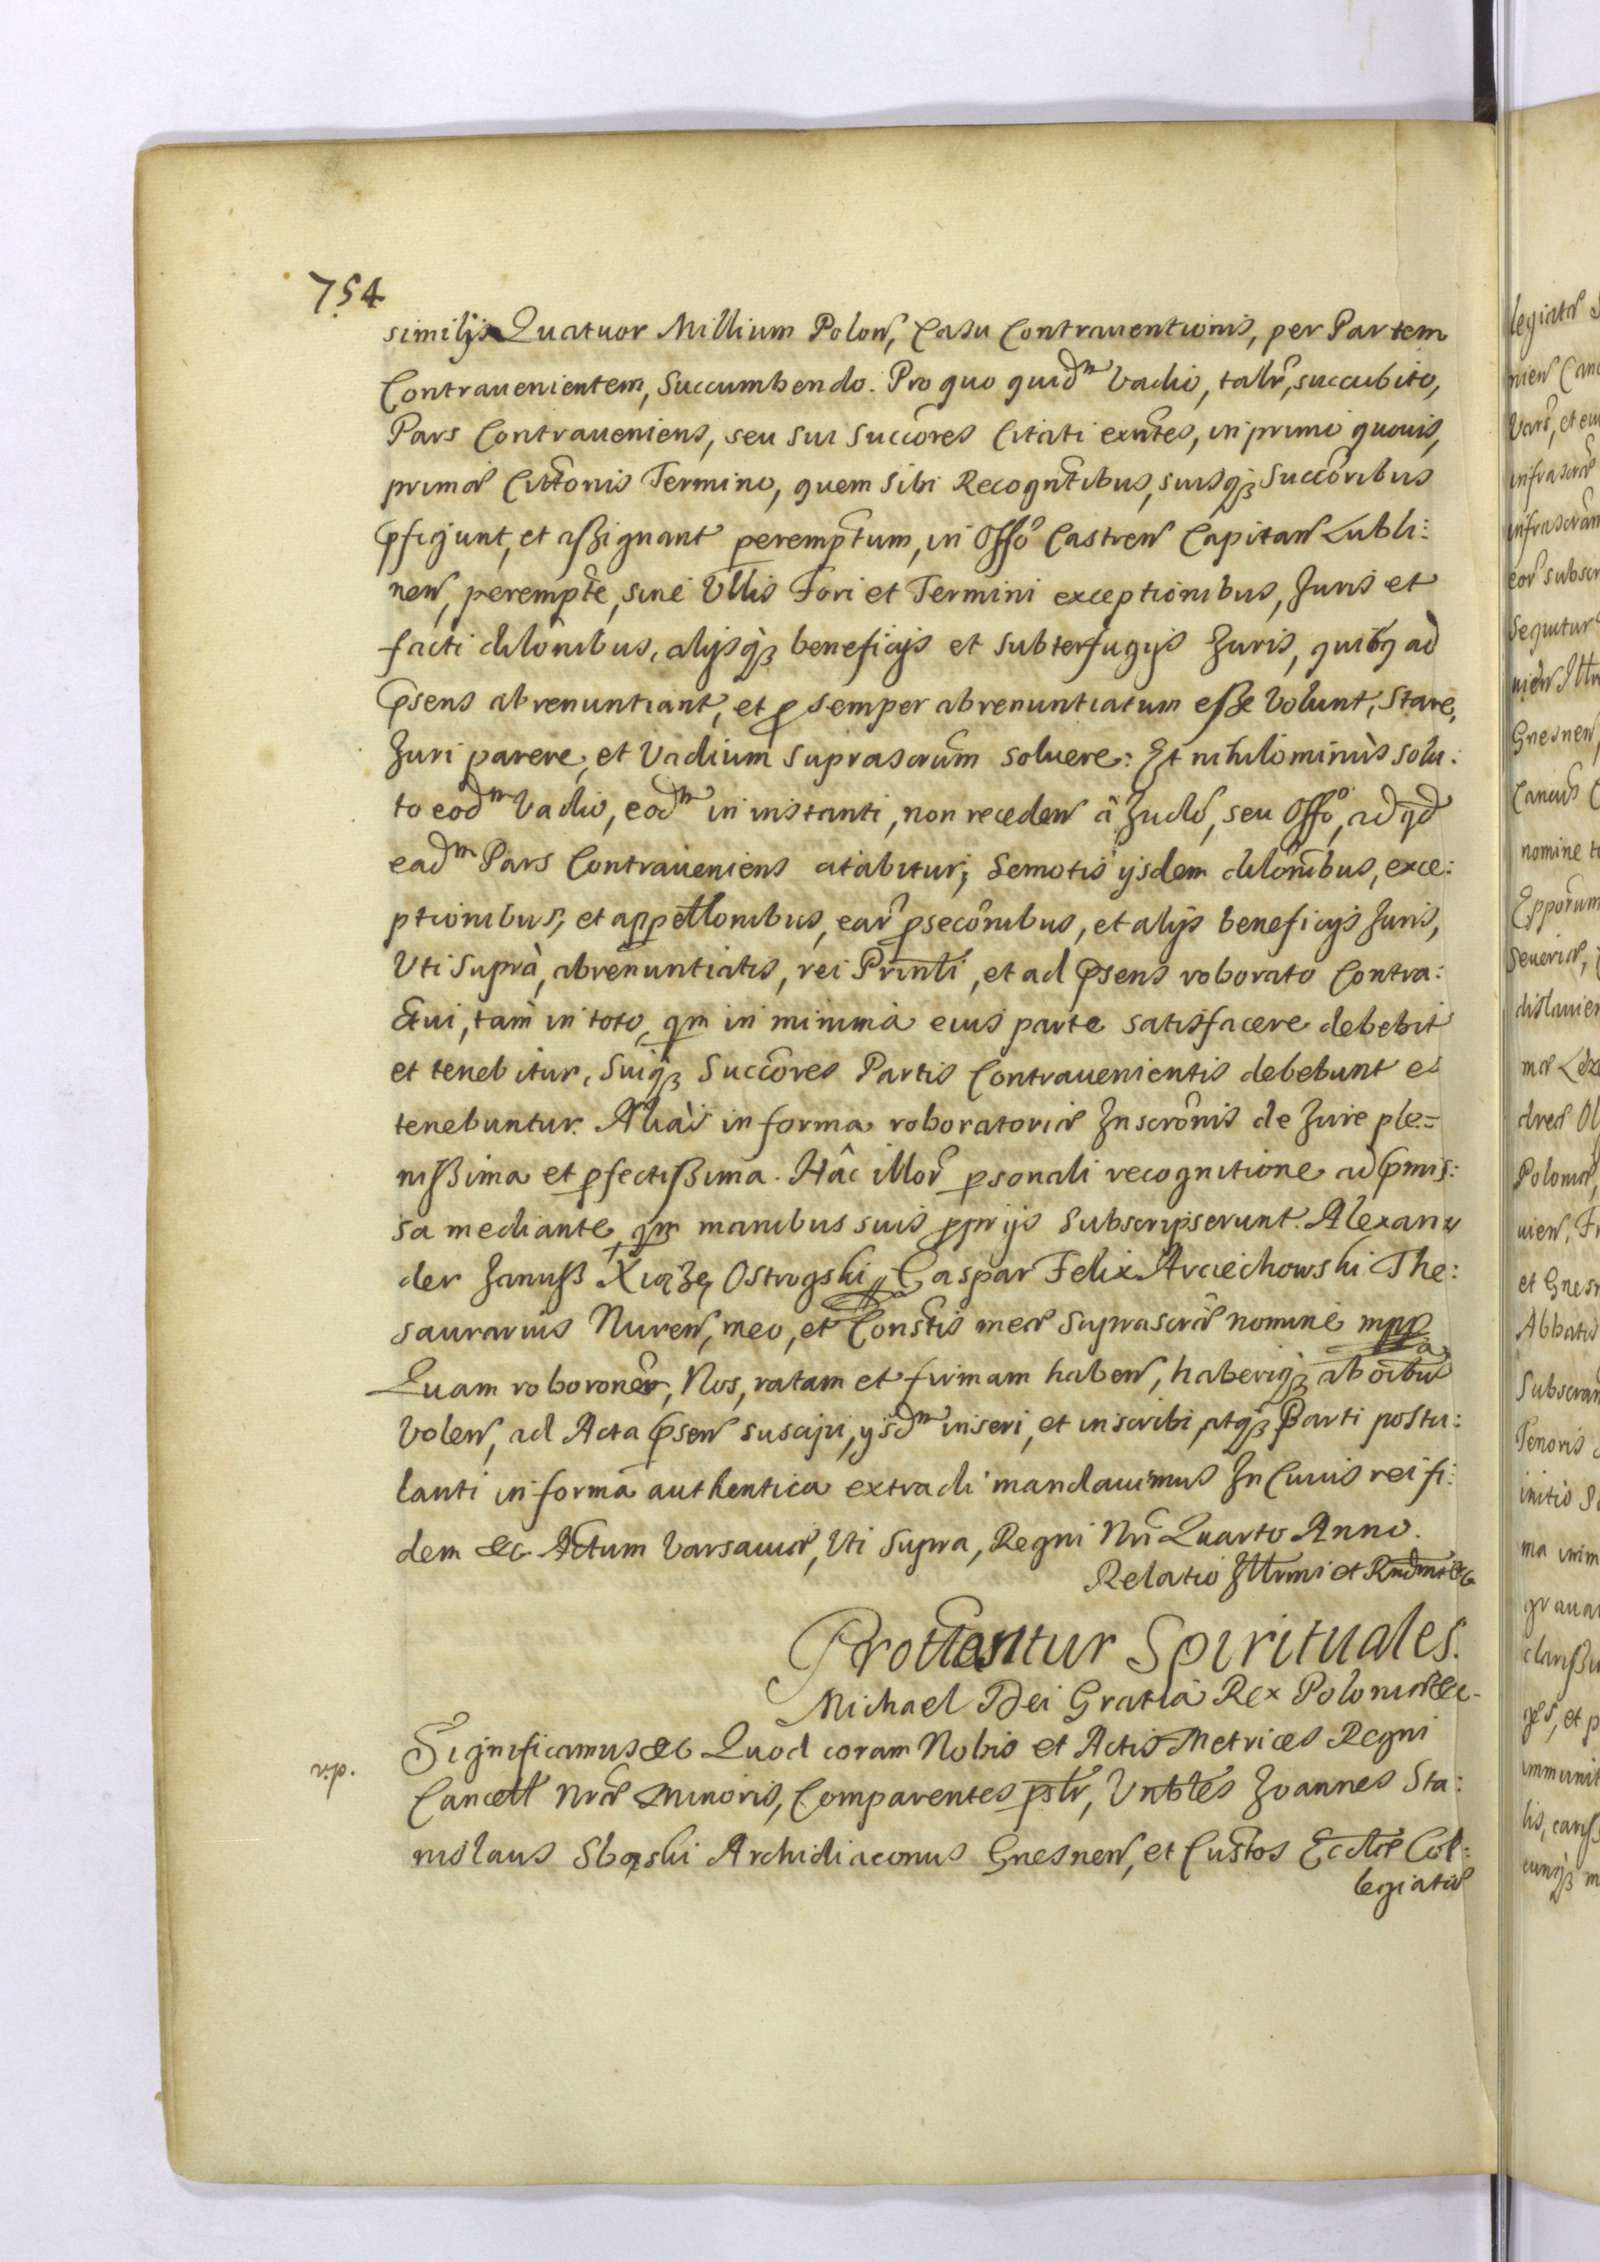 754
similis Quatuor Millium Polon, Casu Contrauentionis, per Partem
Contrauenientem, Succumbendo. Pro quo quidm Vadio, talr, succubito,
Pars Contraueniens, seu sui Succores Citati exntes, in primo quouis,
primæ Cittonis Termino, quem Sibi Recogntibus, suisqꝫ Succoribus
pfigunt, et assignant peremptum, in Offo Castren Capitan Lubli:
nen, perempte, sine Vllis Fori et Termini exceptionibus, Juris et
facti dilonibus, alijsqꝫ beneficijs et subterfugijs Juris, quibꝗ ad
psens abrenuntiant, et p semper abrenuntiatum esse Volunt, Stare,
Juri parere, et Vadium suprascrum soluere: Et nihilominùs solu:
to eodm Vadio, eodm in instanti, non receden à Judo, seu Offo, ad qd
eadm Pars Contraueniens citabitur, Semotis ijsdem dilonibus, exce:
ptionibus, et appellonibus, ear psecònibus, et alijs beneficijs Juris,
Vti Suprà, abrenuntiatis, rei Prinli, et ad Psens roborato Contra:
ctui, tàm in toto, qm in minima eius parte satisfacere debebit
et tenebitur, Suiqꝫ Succores Partis Contrauenientis debebunt et
tenebuntur. Aliàs in forma roboratoriæ Inscronis de Jure ple=
nissima et pfectissima. Hâc illor psonali recognitione ad pmis:
sa mediante, qm manibus suis pprijs Subscripserunt. Alexan
der Janusz Xiąże Ostrogski. Caspar Felix Arciechowski The:
saurarius Nuren, meo, et Constis meæ Suprascræ nomine mpp
Quam roboronem, Nos, ratam et firmam haben, haberiqꝫ ab oibus
Volen, ad Acta psen suscipi, ijsdm inseri, et inscribi, atqꝫ Parti postu:
lanti in forma authentica extradi mandauimus In Cuius rei fi:
dem &c. Actum Varsauiæ, Vti Supra, Regni Nri Quarto Anno.
Relatio Illrmi et Rndmi &c
Prottantur Spirituales.
Michael Dei Gratia Rex Poloniæ &c.
v.p.
Significamus &c Quod coram Nobis et Actis Metrices Regni
Cancell Nræ Minoris, Comparentes pslr, Vnbles Joannes Sta:
nislaus Sbąski Archidiaconus Gnesnen, et Custos Ecclæ Col:
legiatæ